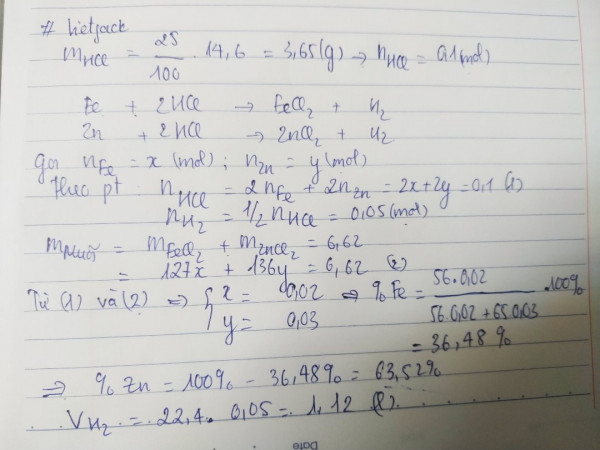 # Lietjack
mHCl = 25/100 . 14,6 = 3,65(g) → nHCl = 0,1(mol)
Fe + 2HCl → FeCl₂ + H₂
Zn + 2HCl → ZnCl₂ + H₂
Gọi nFe = x (mol) ; nZn = y (mol)
Theo pt : nHCl = 2nFe + 2nZn = 2x+2y = 0,1 (1)
nH₂ = 1/2 nHCl = 0,05 (mol)
mmuối = mFeCl₂ + mZnCl₂ = 6,62
= 127x + 136y = 6,62 (2)
Từ (1) và (2) ⇒ { x = 0,02 y = 0,03 ⇒ %Fe = 56.0,02 / 56.0,02 + 65.0,03 .100%
= 36,48 %
⇒ % Zn = 100% - 36,48% = 63,52%
VH₂ = 22,4 . 0,05 = 1,12 (l)
Date